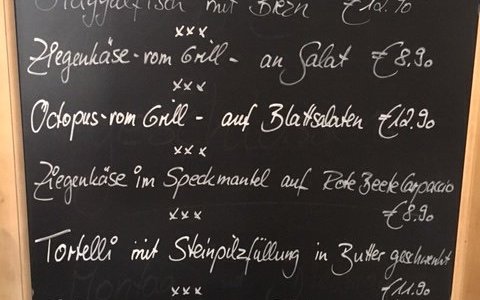 mit Brezn €12.90
xxx
Ziegenkäse - vom Grill - an Salat €8.90
xxx
Octopus - vom Grill - auf Blattsalaten €12.90
xxx
Ziegenkäse im Speckmantel auf Rote Beete Carpaccio
€8.90
xxx
Tortelli mit Steinpilzfüllung in Butter geschwenkt
xxx €11.90